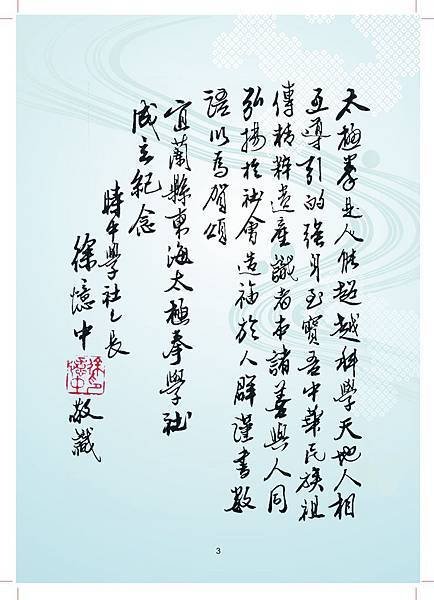 太極拳是人能超越科學天地人相
互導引的強身至寶吾中華民族祖
傳精粹遺產識者本諸善與人同
弘揚於社會造福於人群謹書數
語以為賀頌
宜蘭縣東海太極拳學社
成立紀念
時中學社社長
徐憶中
敬識
3